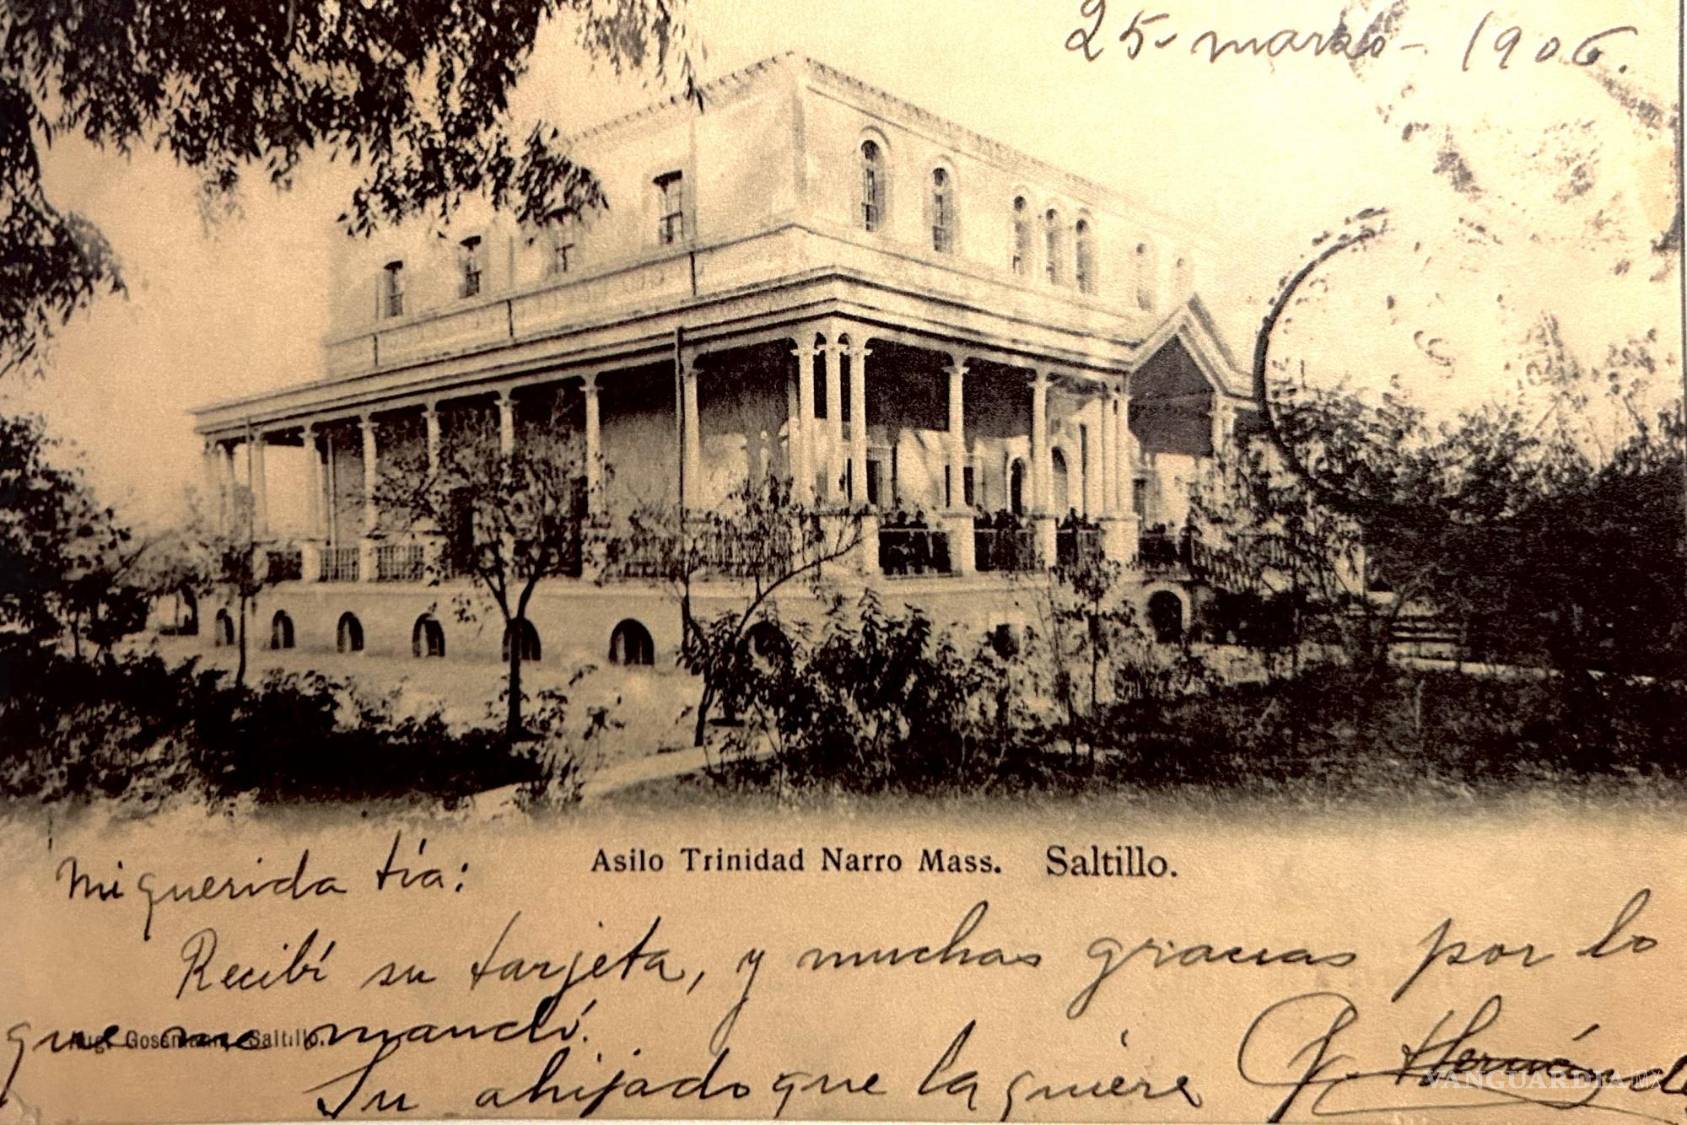 25 - marzo - 1906.
Asilo Trinidad Narro Mass. Saltillo.
Mi querida tía:
Recibí su tarjeta, y muchas gracias por lo
que me mandó.
Aug. Gossmann, Saltillo.
Su ahijado que la quiere
VANGUARDIA MX